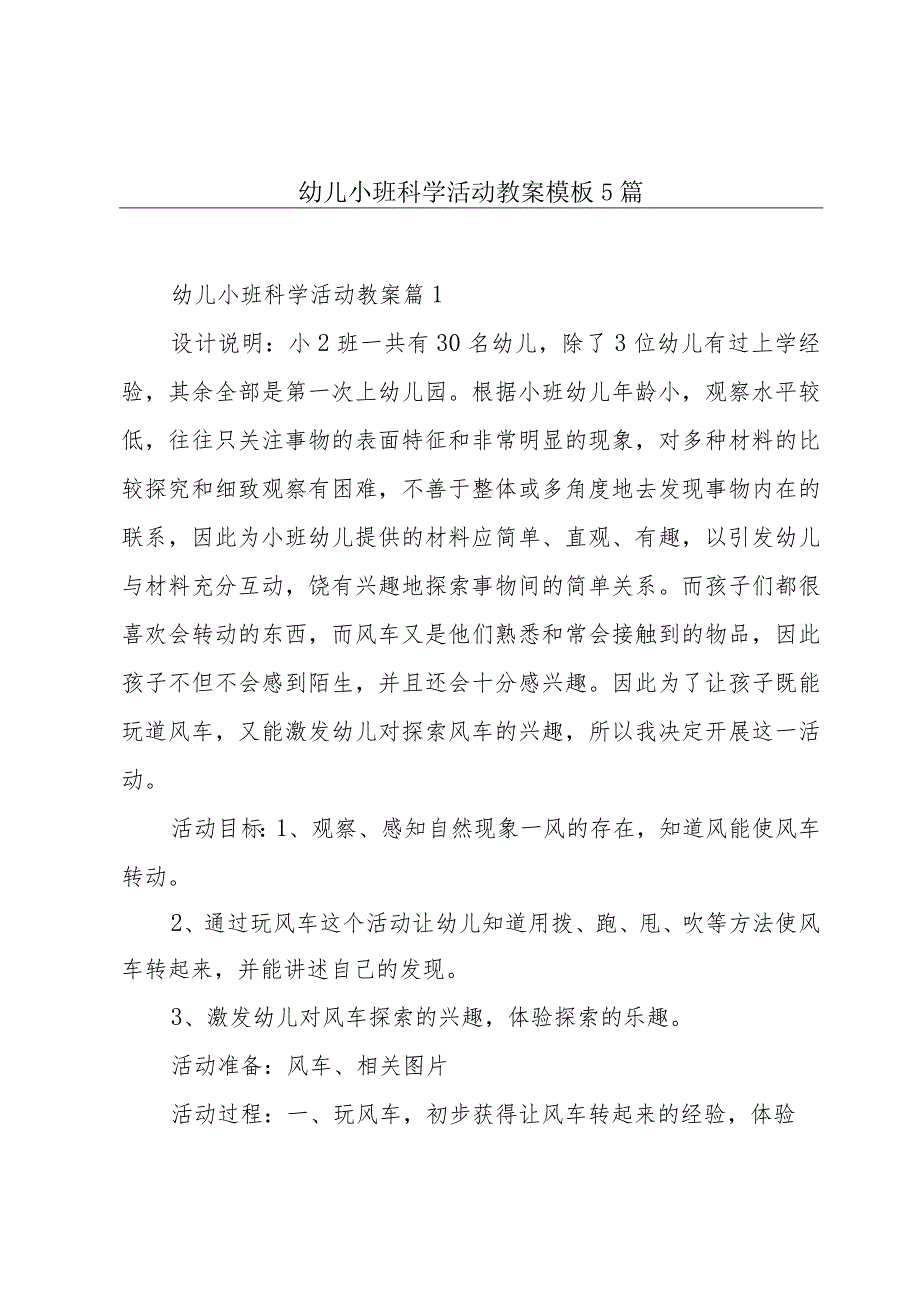 幼儿小班科学活动教案模板 5 篇
幼儿小班科学活动教案篇 1
设计说明：小 2 班一共有 30 名幼儿，除了 3 位幼儿有过上学经
验，其余全部是第一次上幼儿园。根据小班幼儿年龄小，观察水平较
低，往往只关注事物的表面特征和非常明显的现象，对多种材料的比
较探究和细致观察有困难，不善于整体或多角度地去发现事物内在的
联系，因此为小班幼儿提供的材料应简单、直观、有趣，以引发幼儿
与材料充分互动，饶有兴趣地探索事物间的简单关系。而孩子们都很
喜欢会转动的东西，而风车又是他们熟悉和常会接触到的物品，因此
孩子不但不会感到陌生，并且还会十分感兴趣。因此为了让孩子既能
玩道风车，又能激发幼儿对探索风车的兴趣，所以我决定开展这一活
动。
活动目标：1、观察、感知自然现象一风的存在，知道风能使风车
转动。
2、通过玩风车这个活动让幼儿知道用拨、跑、甩、吹等方法使风
车转起来，并能讲述自己的发现。
3、激发幼儿对风车探索的兴趣，体验探索的乐趣。
活动准备：风车、相关图片
活动过程：一、玩风车，初步获得让风车转起来的经验，体验